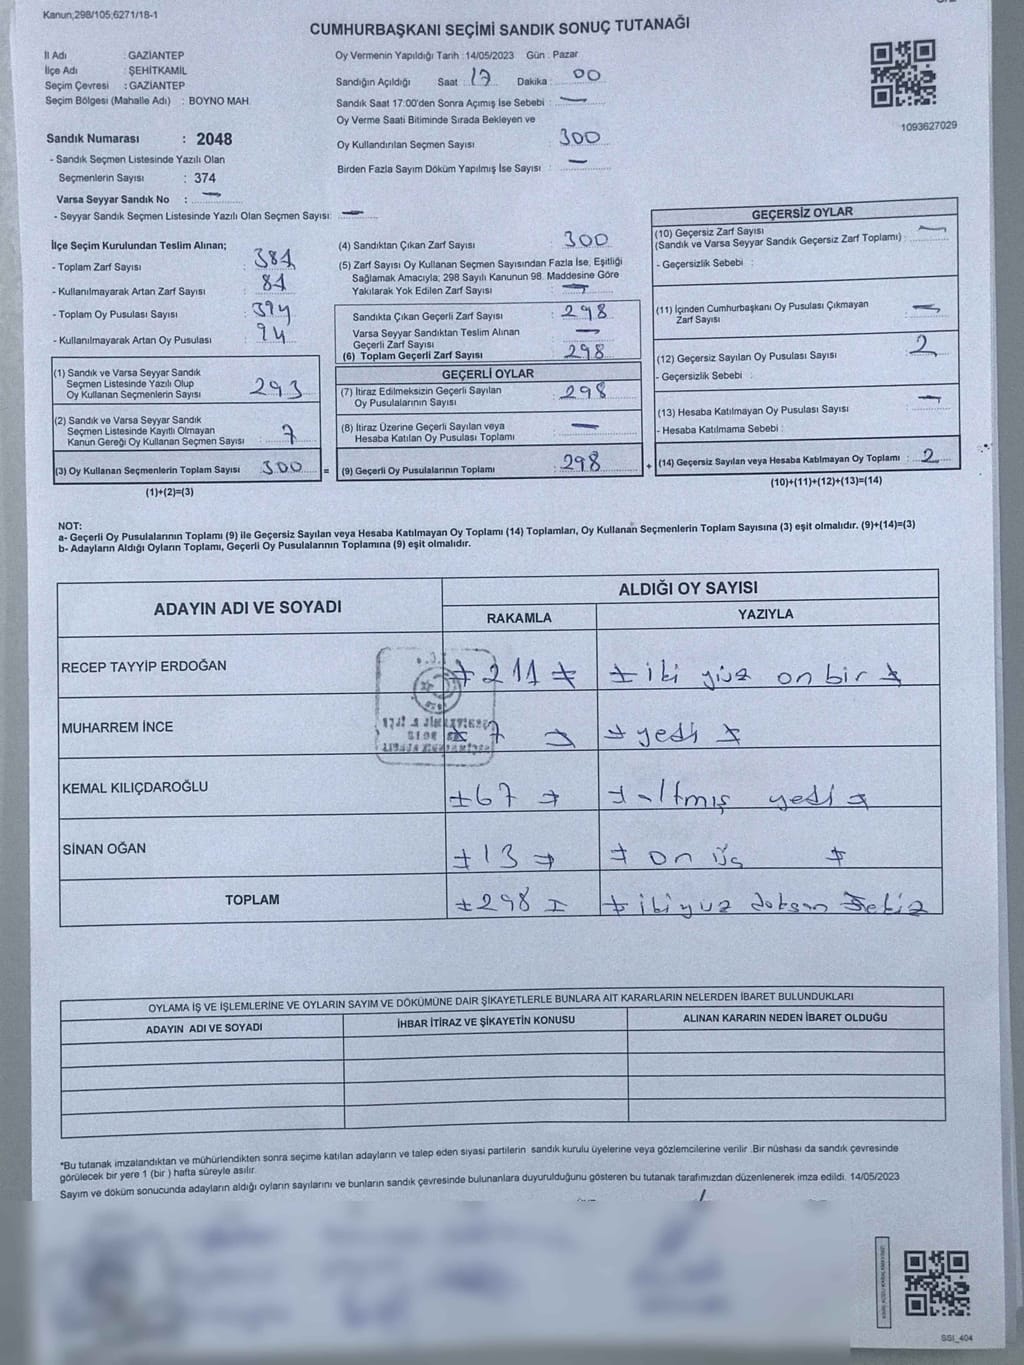 Kanun;298/105;6271/18-1
CUMHURBAŞKANI SEÇİMİ SANDIK SONUÇ TUTANAĞI
İl Adı : GAZİANTEP
İlçe Adı : ŞEHİTKAMİL
Seçim Çevresi : GAZİANTEP
Seçim Bölgesi (Mahalle Adı) : BOYNO MAH.
Oy Vermenin Yapıldığı Tarih : 14/05/2023 Gün : Pazar
Sandığın Açıldığı Saat 17 Dakika : 00
Sandık Saat 17:00'den Sonra Açımış İse Sebebi : —
Oy Verme Saati Bitiminde Sırada Bekleyen ve
Oy Kullandırılan Seçmen Sayısı 300
Birden Fazla Sayım Döküm Yapılmış İse Sayısı : —
1093627029
Sandık Numarası : 2048
- Sandık Seçmen Listesinde Yazılı Olan
Seçmenlerin Sayısı : 374
Varsa Seyyar Sandık No : —
- Seyyar Sandık Seçmen Listesinde Yazılı Olan Seçmen Sayısı: —
İlçe Seçim Kurulundan Teslim Alınan;
- Toplam Zarf Sayısı : 381
- Kullanılmayarak Artan Zarf Sayısı : 81
- Toplam Oy Pusulası Sayısı : 394
- Kullanılmayarak Artan Oy Pusulası : 94
(1) Sandık ve Varsa Seyyar Sandık
Seçmen Listesinde Yazılı Olup
Oy Kullanan Seçmenlerin Sayısı 293
(2) Sandık ve Varsa Seyyar Sandık
Seçmen Listesinde Kayıtlı Olmayan
Kanun Gereği Oy Kullanan Seçmen Sayısı : 7
(3) Oy Kullanan Seçmenlerin Toplam Sayısı : 300 =
(1)+(2)=(3)
(4) Sandıktan Çıkan Zarf Sayısı : 300
(5) Zarf Sayısı Oy Kullanan Seçmen Sayısından Fazla İse, Eşitliği
Sağlamak Amacıyla; 298 Sayılı Kanunun 98. Maddesine Göre
Yakılarak Yok Edilen Zarf Sayısı : —
Sandıkta Çıkan Geçerli Zarf Sayısı : 298
Varsa Seyyar Sandıktan Teslim Alınan
Geçerli Zarf Sayısı : —
(6) Toplam Geçerli Zarf Sayısı : 298
GEÇERLİ OYLAR
(7) İtiraz Edilmeksizin Geçerli Sayılan
Oy Pusulalarının Sayısı : 298
(8) İtiraz Üzerine Geçerli Sayılan veya
Hesaba Katılan Oy Pusulası Toplamı : —
(9) Geçerli Oy Pusulalarının Toplamı : 298 +
GEÇERSİZ OYLAR
(10) Geçersiz Zarf Sayısı
(Sandık ve Varsa Seyyar Sandık Geçersiz Zarf Toplamı) : —
- Geçersizlik Sebebi :
(11) İçinden Cumhurbaşkanı Oy Pusulası Çıkmayan
Zarf Sayısı : —
(12) Geçersiz Sayılan Oy Pusulası Sayısı : 2
- Geçersizlik Sebebi :
(13) Hesaba Katılmayan Oy Pusulası Sayısı : —
- Hesaba Katılmama Sebebi :
(14) Geçersiz Sayılan veya Hesaba Katılmayan Oy Toplamı : 2
(10)+(11)+(12)+(13)=(14)
NOT:
a- Geçerli Oy Pusulalarının Toplamı (9) ile Geçersiz Sayılan veya Hesaba Katılmayan Oy Toplamı (14) Toplamları, Oy Kullanan Seçmenlerin Toplam Sayısına (3) eşit olmalıdır. (9)+(14)=(3)
b- Adayların Aldığı Oyların Toplamı, Geçerli Oy Pusulalarının Toplamına (9) eşit olmalıdır.
ADAYIN ADI VE SOYADI ALDIĞI OY SAYISI
RAKAMLA YAZIYLA
RECEP TAYYİP ERDOĞAN 211 iki yüz on bir
MUHARREM İNCE 7 yedi
KEMAL KILIÇDAROĞLU 67 altmış yedi
SİNAN OĞAN 13 on üç
TOPLAM 298 ikiyüz doksan sekiz
OYLAMA İŞ VE İŞLEMLERİNE VE OYLARIN SAYIM VE DÖKÜMÜNE DAİR ŞİKAYETLERLE BUNLARA AİT KARARLARIN NELERDEN İBARET BULUNDUKLARI
ADAYIN ADI VE SOYADI İHBAR İTİRAZ VE ŞİKAYETİN KONUSU ALINAN KARARIN NEDEN İBARET OLDUĞU
*Bu tutanak imzalandıktan ve mühürlendikten sonra seçime katılan adayların ve talep eden siyasi partilerin sandık kurulu üyelerine veya gözlemcilerine verilir .Bir nüshası da sandık çevresinde
görülecek bir yere 1 (bir ) hafta süreyle asılır.
Sayım ve döküm sonucunda adayların aldığı oyların sayılarını ve bunların sandık çevresinde bulunanlara duyurulduğunu gösteren bu tutanak tarafımızdan düzenlenerek imza edildi. 14/05/2023
SSI_404